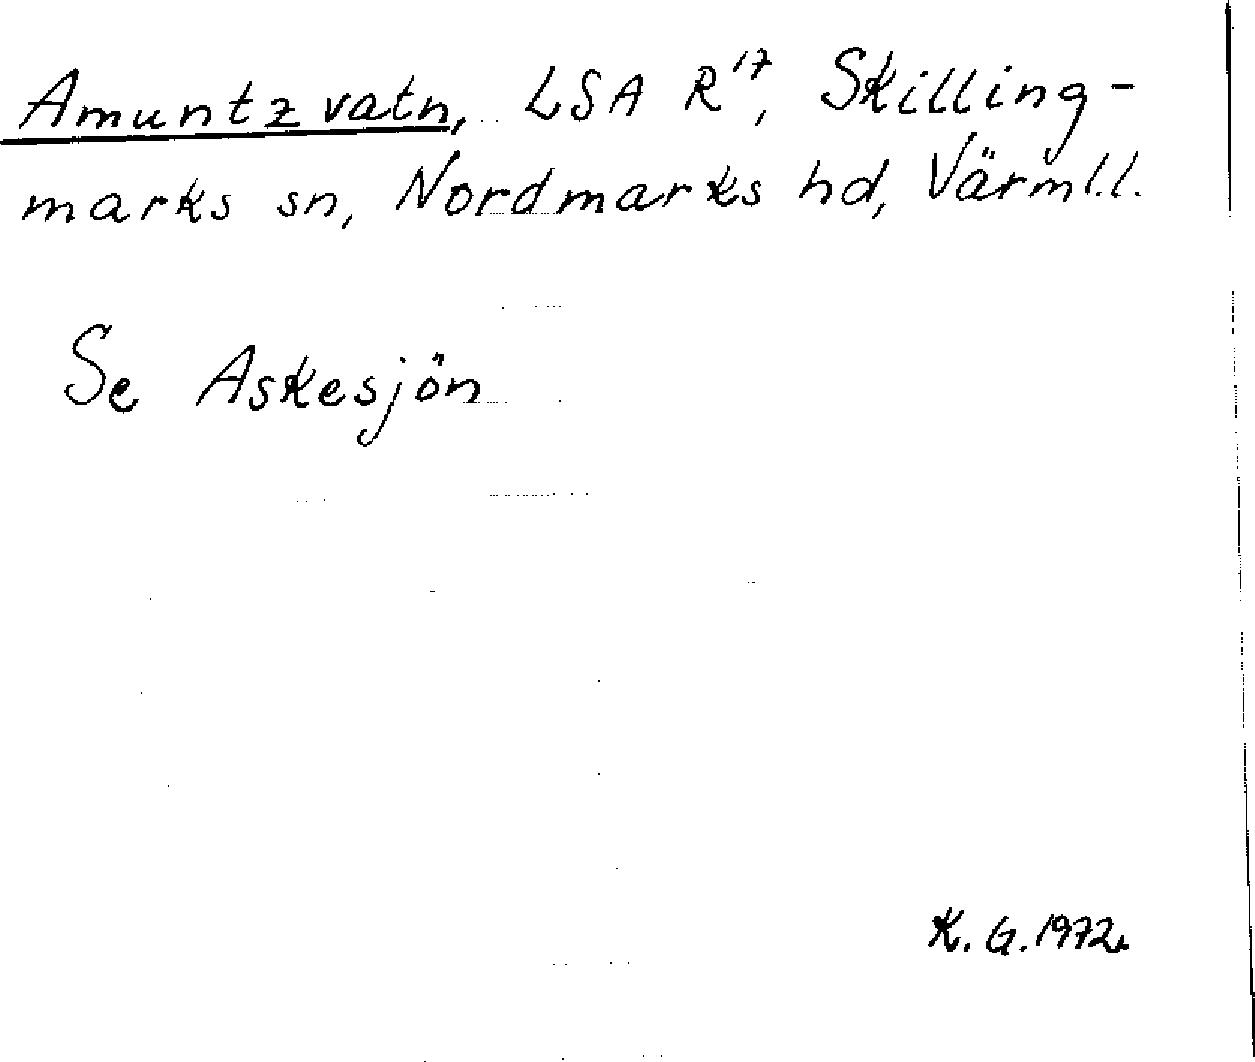 Amuntz vatn, LSA R¹⁷, Skilling-
marks sn, Nordmarks hd, Värml.l.
Se Askesjön
K. G. 1972.